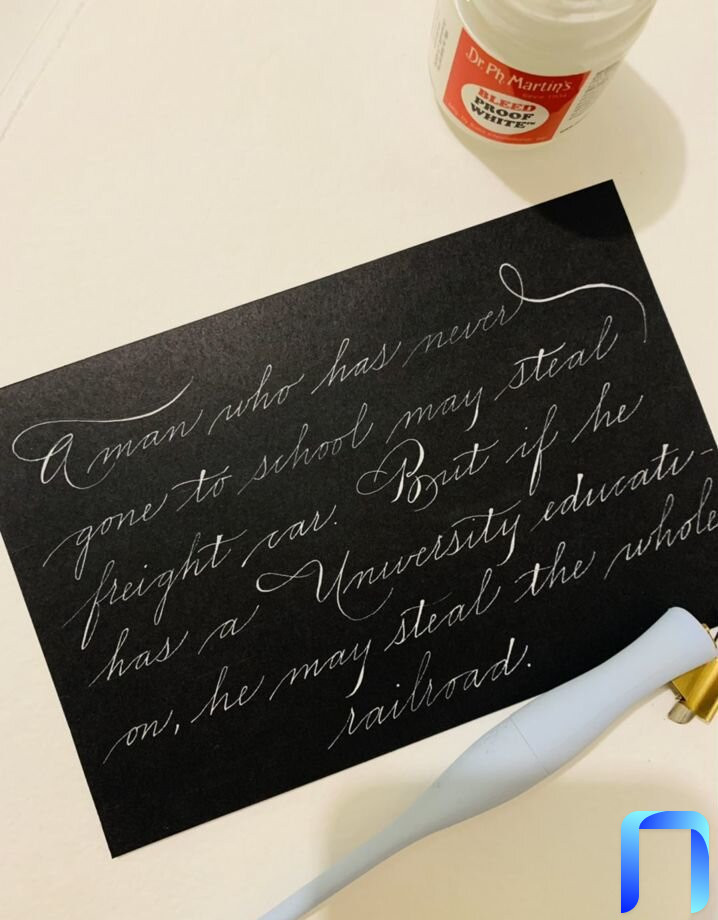 Dr. Ph. Martin's
BLEED
PROOF
WHITE™
A man who has never
gone to school may steal
freight car. But if he
has a University educati-
on, he may steal the whole
railroad.